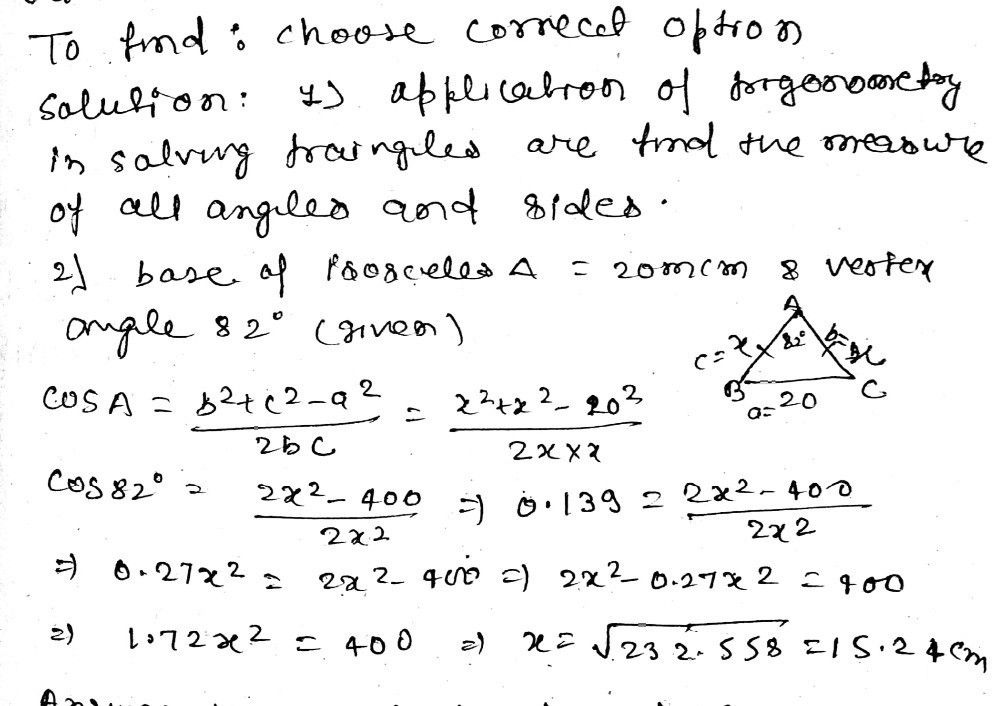 To find : choose correct option
Solution: 1) application of trigonometry
in solving traingiles are find the measure
of all angiles and sides.
2) base of isosceles Δ = 20mcm & vertex
angle 82° (given)
A
82°
c=x
b=x
B
C
a=20
COS A = b²+c²-a² / 2bc = x²+x²-20² / 2x×x
COS 82° = 2x²-400 / 2x² => 0.139 = 2x²-400 / 2x²
=> 0.27x² = 2x²-400 => 2x²-0.27x² = 400
=> 1.72x² = 400 => x = √232.558 = 15.24cm